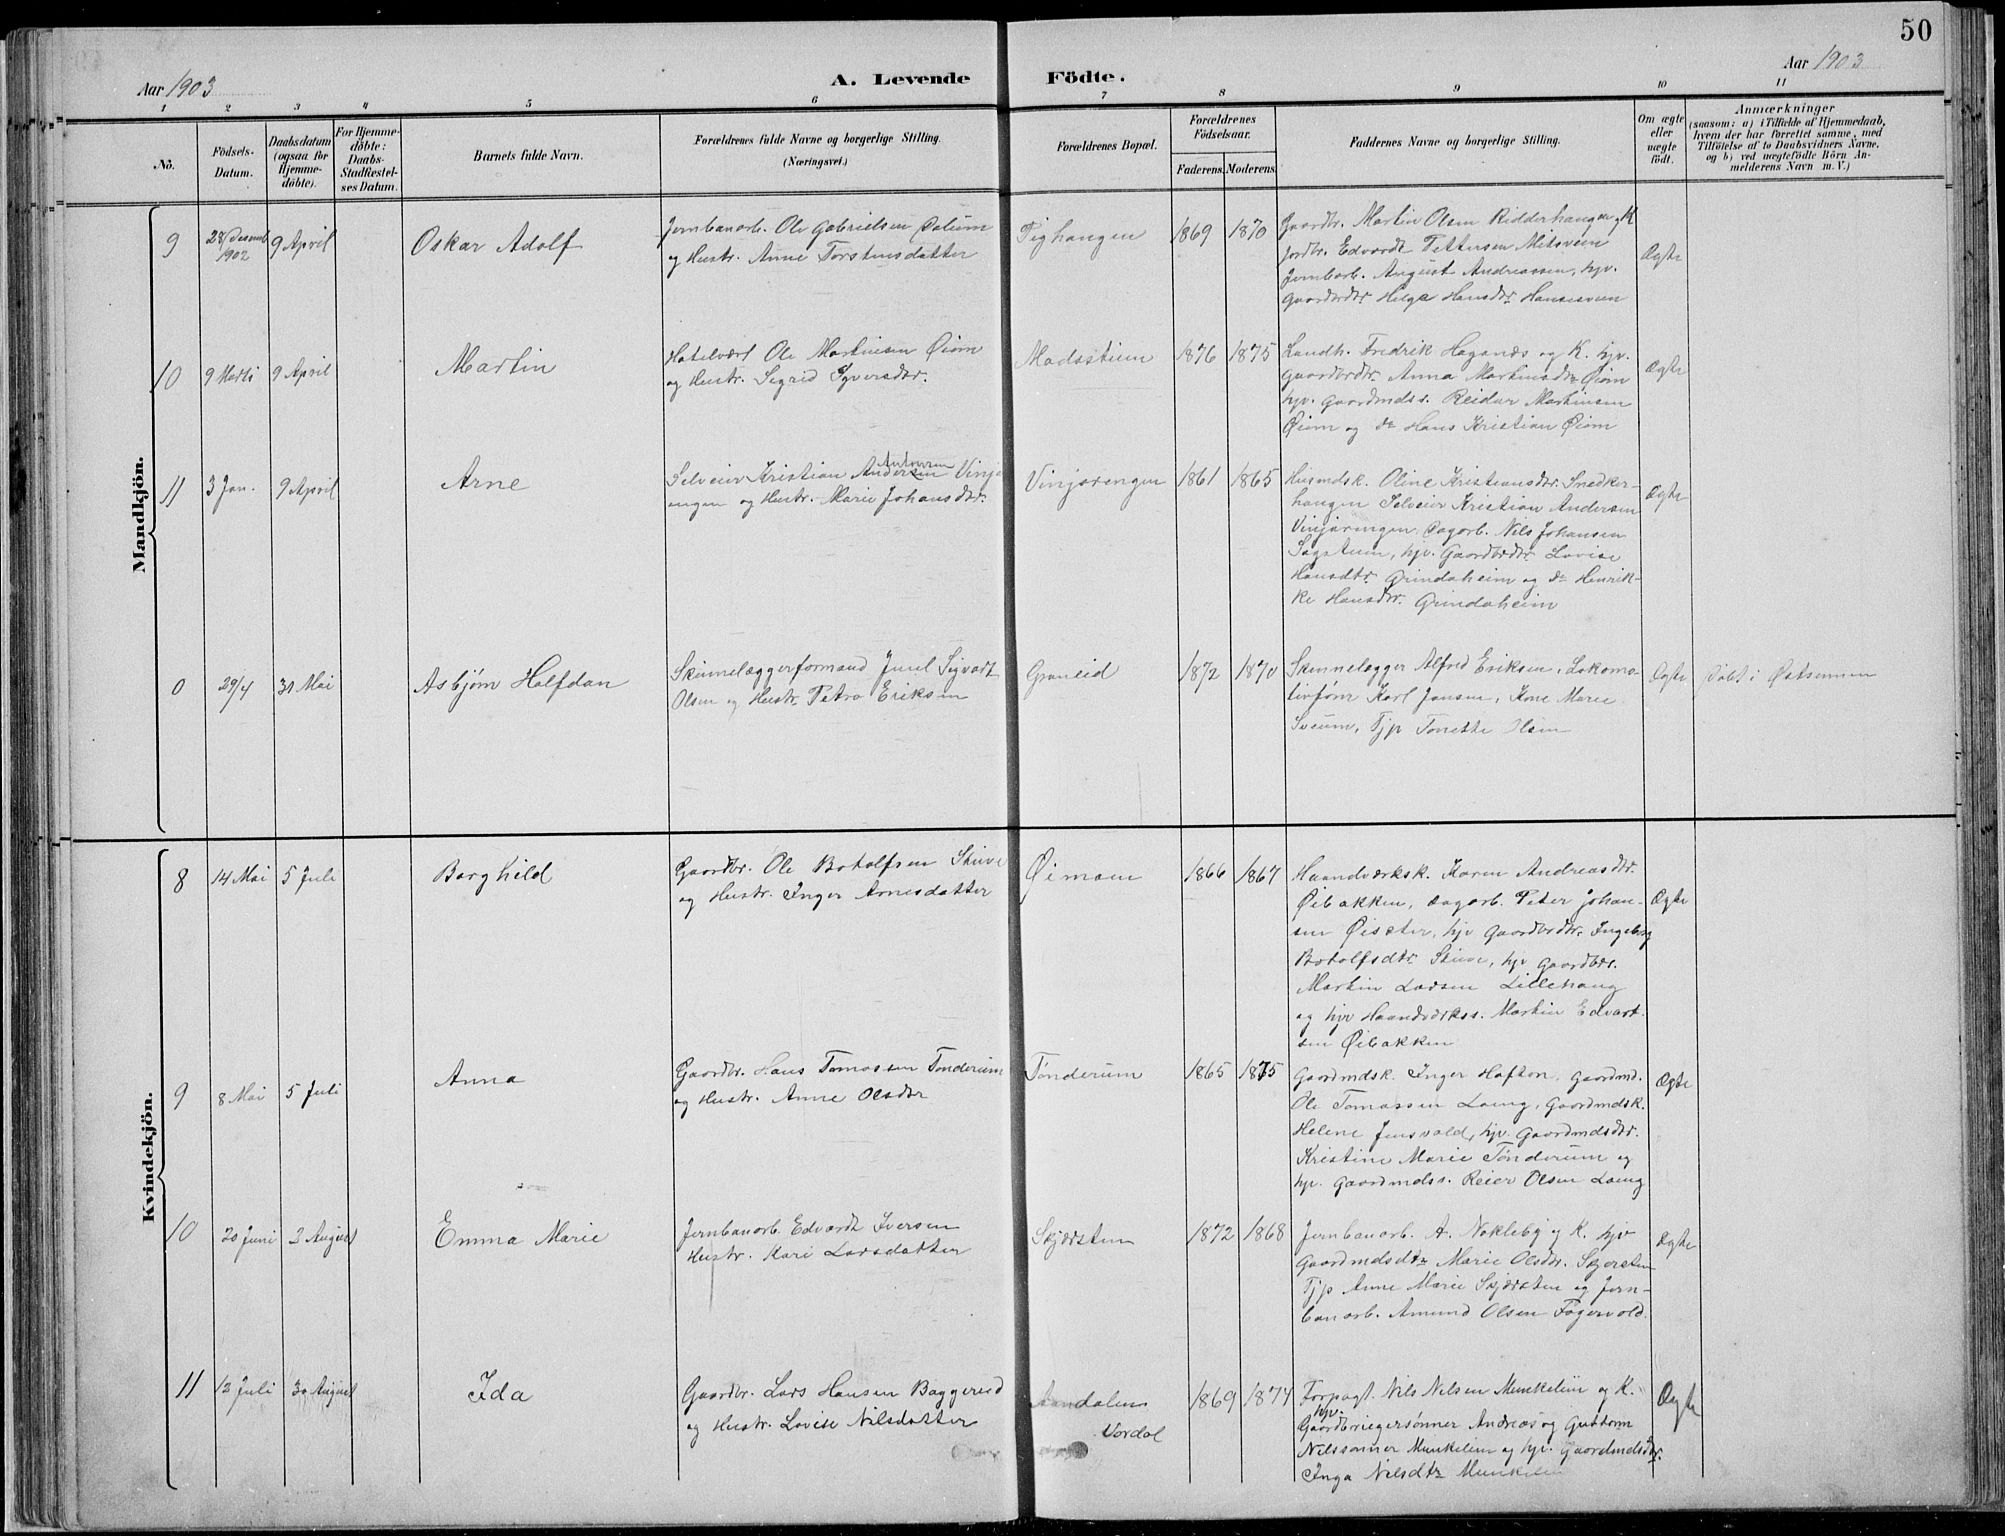 50
Aar 1903
A. Levende Födte.
Aar 1903
1 2 3 4 5 6 7 8 9 10 11
No.
Födsels-
Datum.
Daabsdatum
(ogsaa for
Hjemme-
döbte).
For Hjemme-
döbte:
Daabs-
Stadfæstel-
ses Datum.
Barnets fulde Navn.
Forældrenes fulde Navne og borgerlige Stilling.
(Næringsvei.)
Forældrenes Bopæl.
Forældrenes
Födselsaar.
Faderens. Moderens.
Faddernes Navne og borgerlige Stilling.
Om ægte
eller
uægte
födt.
Anmærkninger
(saasom: a) i Tilfælde af Hjemmedaab,
hvem der har forrettet samme, med
Tilföielse af to Daabsvidners Navne,
og b) ved uægtefödte Börn An-
melderens Navn m. V.)
Mandkjön.
9
1902
9 April
Oskar Adolf
Jernbanarb. Ole Gabrielsen
og Hustr. Anne Torstensdatter
1869 1870
Gaardbr. Martin Olsen Ridderhaugen og K
Jordbr. Edvardt Pettersen
Jernbarb. August Andreassen, hjv.
Gaardbrdtr. Helga Hansdtr.
Ægte
10
9 Marts
9 April
Martin
Hotelvært Ole Martinsen Øiom
og Hustr. Sigrid Syversdtr.
Madsstuen
1876 1875
Landh. Fredrik Haganæs og K. hjv.
Gaardbrdtr. Anna Martinsdtr Øiom
hjv. Gaardmdss. Reidar Martinsen
Øiom og do Hans Kristian Øiom
Ægte
11
3 Jan.
9 April
Arne
Antonsen
Selveier Kristian Andersen Vinja
engen og Hustr. Marie Johansdtr.
Vinjarengen
1861 1865
Husmdsk. Oline Kristiansdtr. Snedker-
haugen Selveier Kristian Andersen
Vinjarengen, Dagarb. Nils Johansen
Sagstuen, hjv. Gaardbrdtr Lovise
Hansdtr Grindaheim og do Henrik-
ke Hansdtr. Grindaheim
Ægte
0
29/4
31 Mai
Asbjørn Halfdan
Skinnelæggerformand Juul Sigvart
Olsen og Hustr Petra Eriksen
Graneid
1872 1870
Skinnelægger Alfred Eriksen, Lokomo-
tivfører Karl Jansen, Kone Marie
Sveum, Tjp Tonette Olsen
Ægte
Døbt i Østsennen
Kvindekjön.
8
14 Mai
5 Juli
Borghild
Gaardbr. Ole Botolfsen Skuve
og Hustr. Inger Arnesdatter
Øimoen
1866 1867
Haandværksk. Karen Andreasdtr.
Øibakken, Dagarb. Peter Johan-
sen Øisæter, hjv Gaardbrdtr. Ingeborg
Botolfsdtr Skuve, hjv Gaardbrs.
Martin Larsen Lillehaug
og hjv Haandværkss. Martin Edvart-
sen Øibakken
Ægte
9
8 Mai
5 Juli
Anna
Gaardbr. Hans Tomassen Tønderum
og Hustr. Anne Olsdtr
Tønderum
1865 1875
Gaardmdsk. Inger Hafton, Gaardmd.
Ole Tomassen Laeng, Gaardmdsk.
Helene Jensvold, hjv. Gaardmdsdtr.
Kristine Marie Tønderum og
hjv. Gaardmdss. Reier Olsen Laeng
Ægte
10
20 Juni
2 August
Emma Marie
Jernbanarb. Edvardt Iversen
Hustr. Kari Larsdatter
Skjærsten
1872 1868
Jernbanarb. A. Nøkleby og K. hjv
Gaardmdsdtr Marie Olsdtr. Skjersten
Tjp Anne Marie Skjærsten og Jern-
banarb. Amund Olsen Fagervold.
Ægte
11
12 Juli
30 August
Ida
Gaardbr. Lars Hansen Baggerud
og Hustr. Lovise Nilsdatter
Aandalens
Vardal
1869 1874
Forpagt. Nils Nilsen Munkeliin og K.
hjv.
Gaardbrugersønner Andreas og Guttorm
Nilssønner Munkelien og hjv. Gaardmdsdtr.
Inga Nilsdtr Munkelien
Ægte